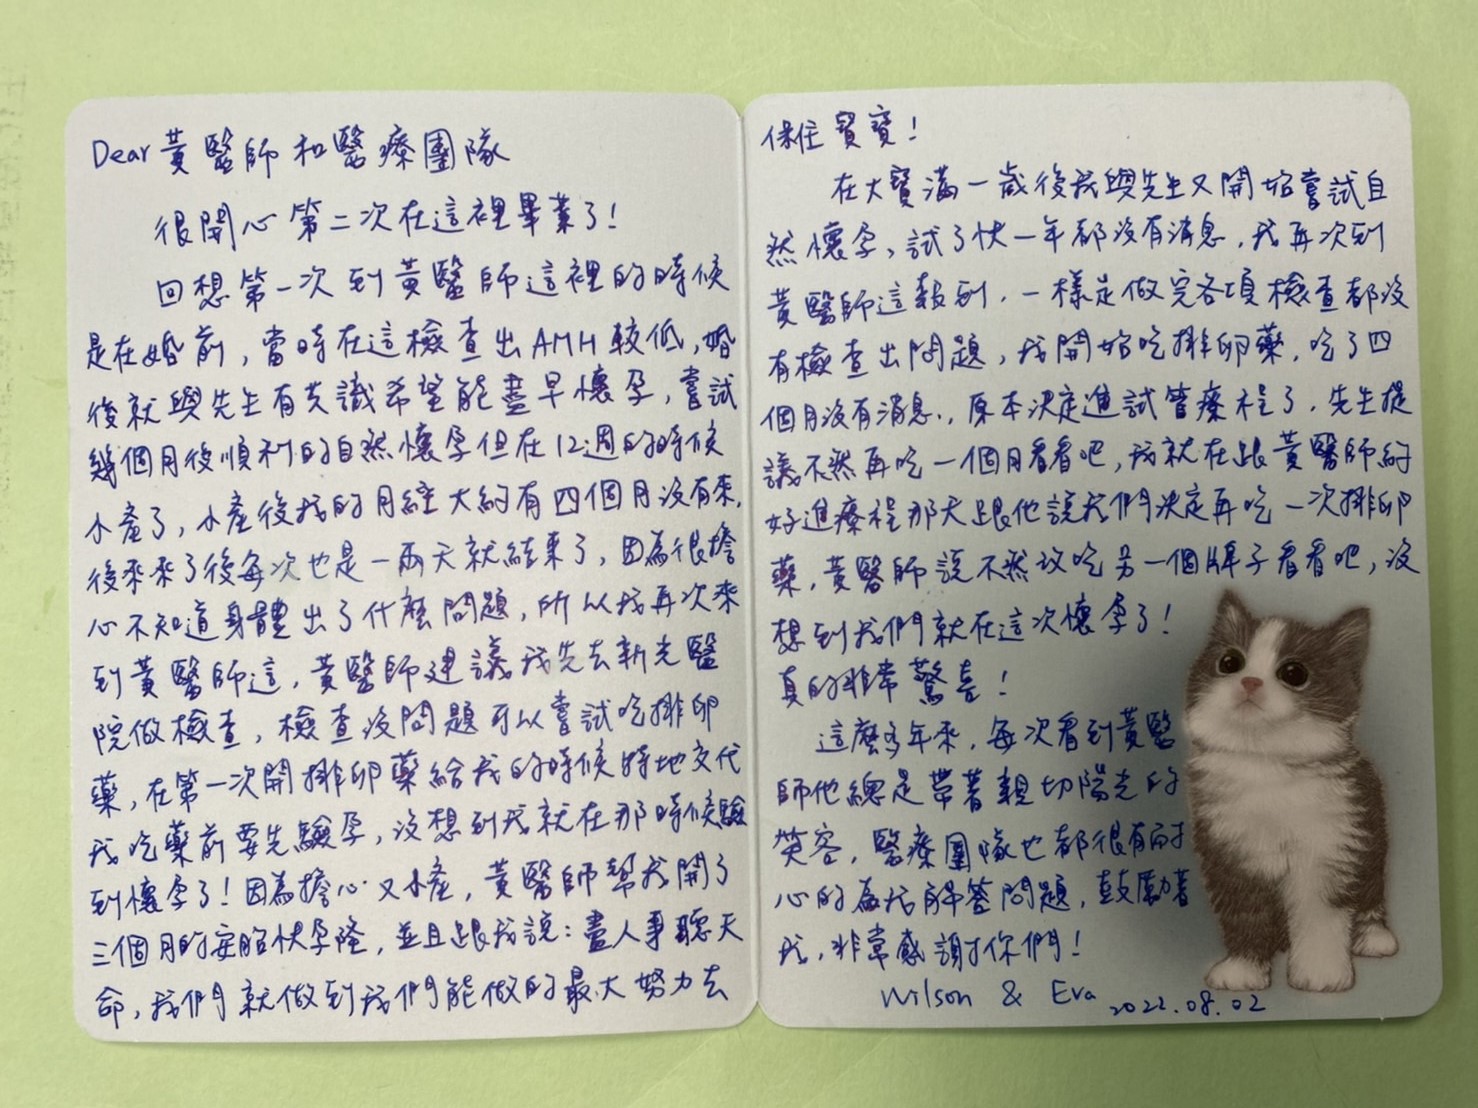 Dear 黃醫師和醫療團隊
很開心第二次在這裡畢業了!
回想第一次到黃醫師這裡的時候
是在婚前,當時在這檢查出AMH較低,婚
後就與先生有共識希望能盡早懷孕,嘗試
幾個月後順利的自然懷孕但在12週的時候
小產了,小產後我的月經大約有四個月沒有來,
後來來了後每次也是一兩天就結束了,因為很擔
心不知道身體出了什麼問題,所以我再次來
到黃醫師這,黃醫師建議我先去新光醫
院做檢查,檢查沒問題可以嘗試吃排卵
藥,在第一次開排卵藥給我的時候特地交代
我吃藥前要先驗孕,沒想到我就在那時候驗
到懷孕了!因為擔心又小產,黃醫師幫我開了
三個月的安胎快孕隆,並且跟我說:盡人事聽天
命,我們就做到我們能做的最大努力去
保住寶寶!
在大寶滿一歲後我與先生又開始嘗試自
然懷孕,試了快一年都沒有消息,我再次到
黃醫師這報到,一樣是做完各項檢查都沒
有檢查出問題,我開始吃排卵藥,吃了四
個月沒有消息,原本決定進試管療程了,先生提
議不然再吃一個月看看吧,我就在跟黃醫師約
好進療程那天跟他說我們決定再吃一次排卵
藥,黃醫師說不然改吃另一個牌子看看吧,沒
想到我們就在這次懷孕了!
真的非常驚喜!
這麼多年來,每次看到黃醫
師他總是帶著親切陽光的
笑容,醫療團隊也都很有耐
心的為我解答問題,鼓勵著
我,非常感謝你們!
Wilson & Eva 2022.08.02